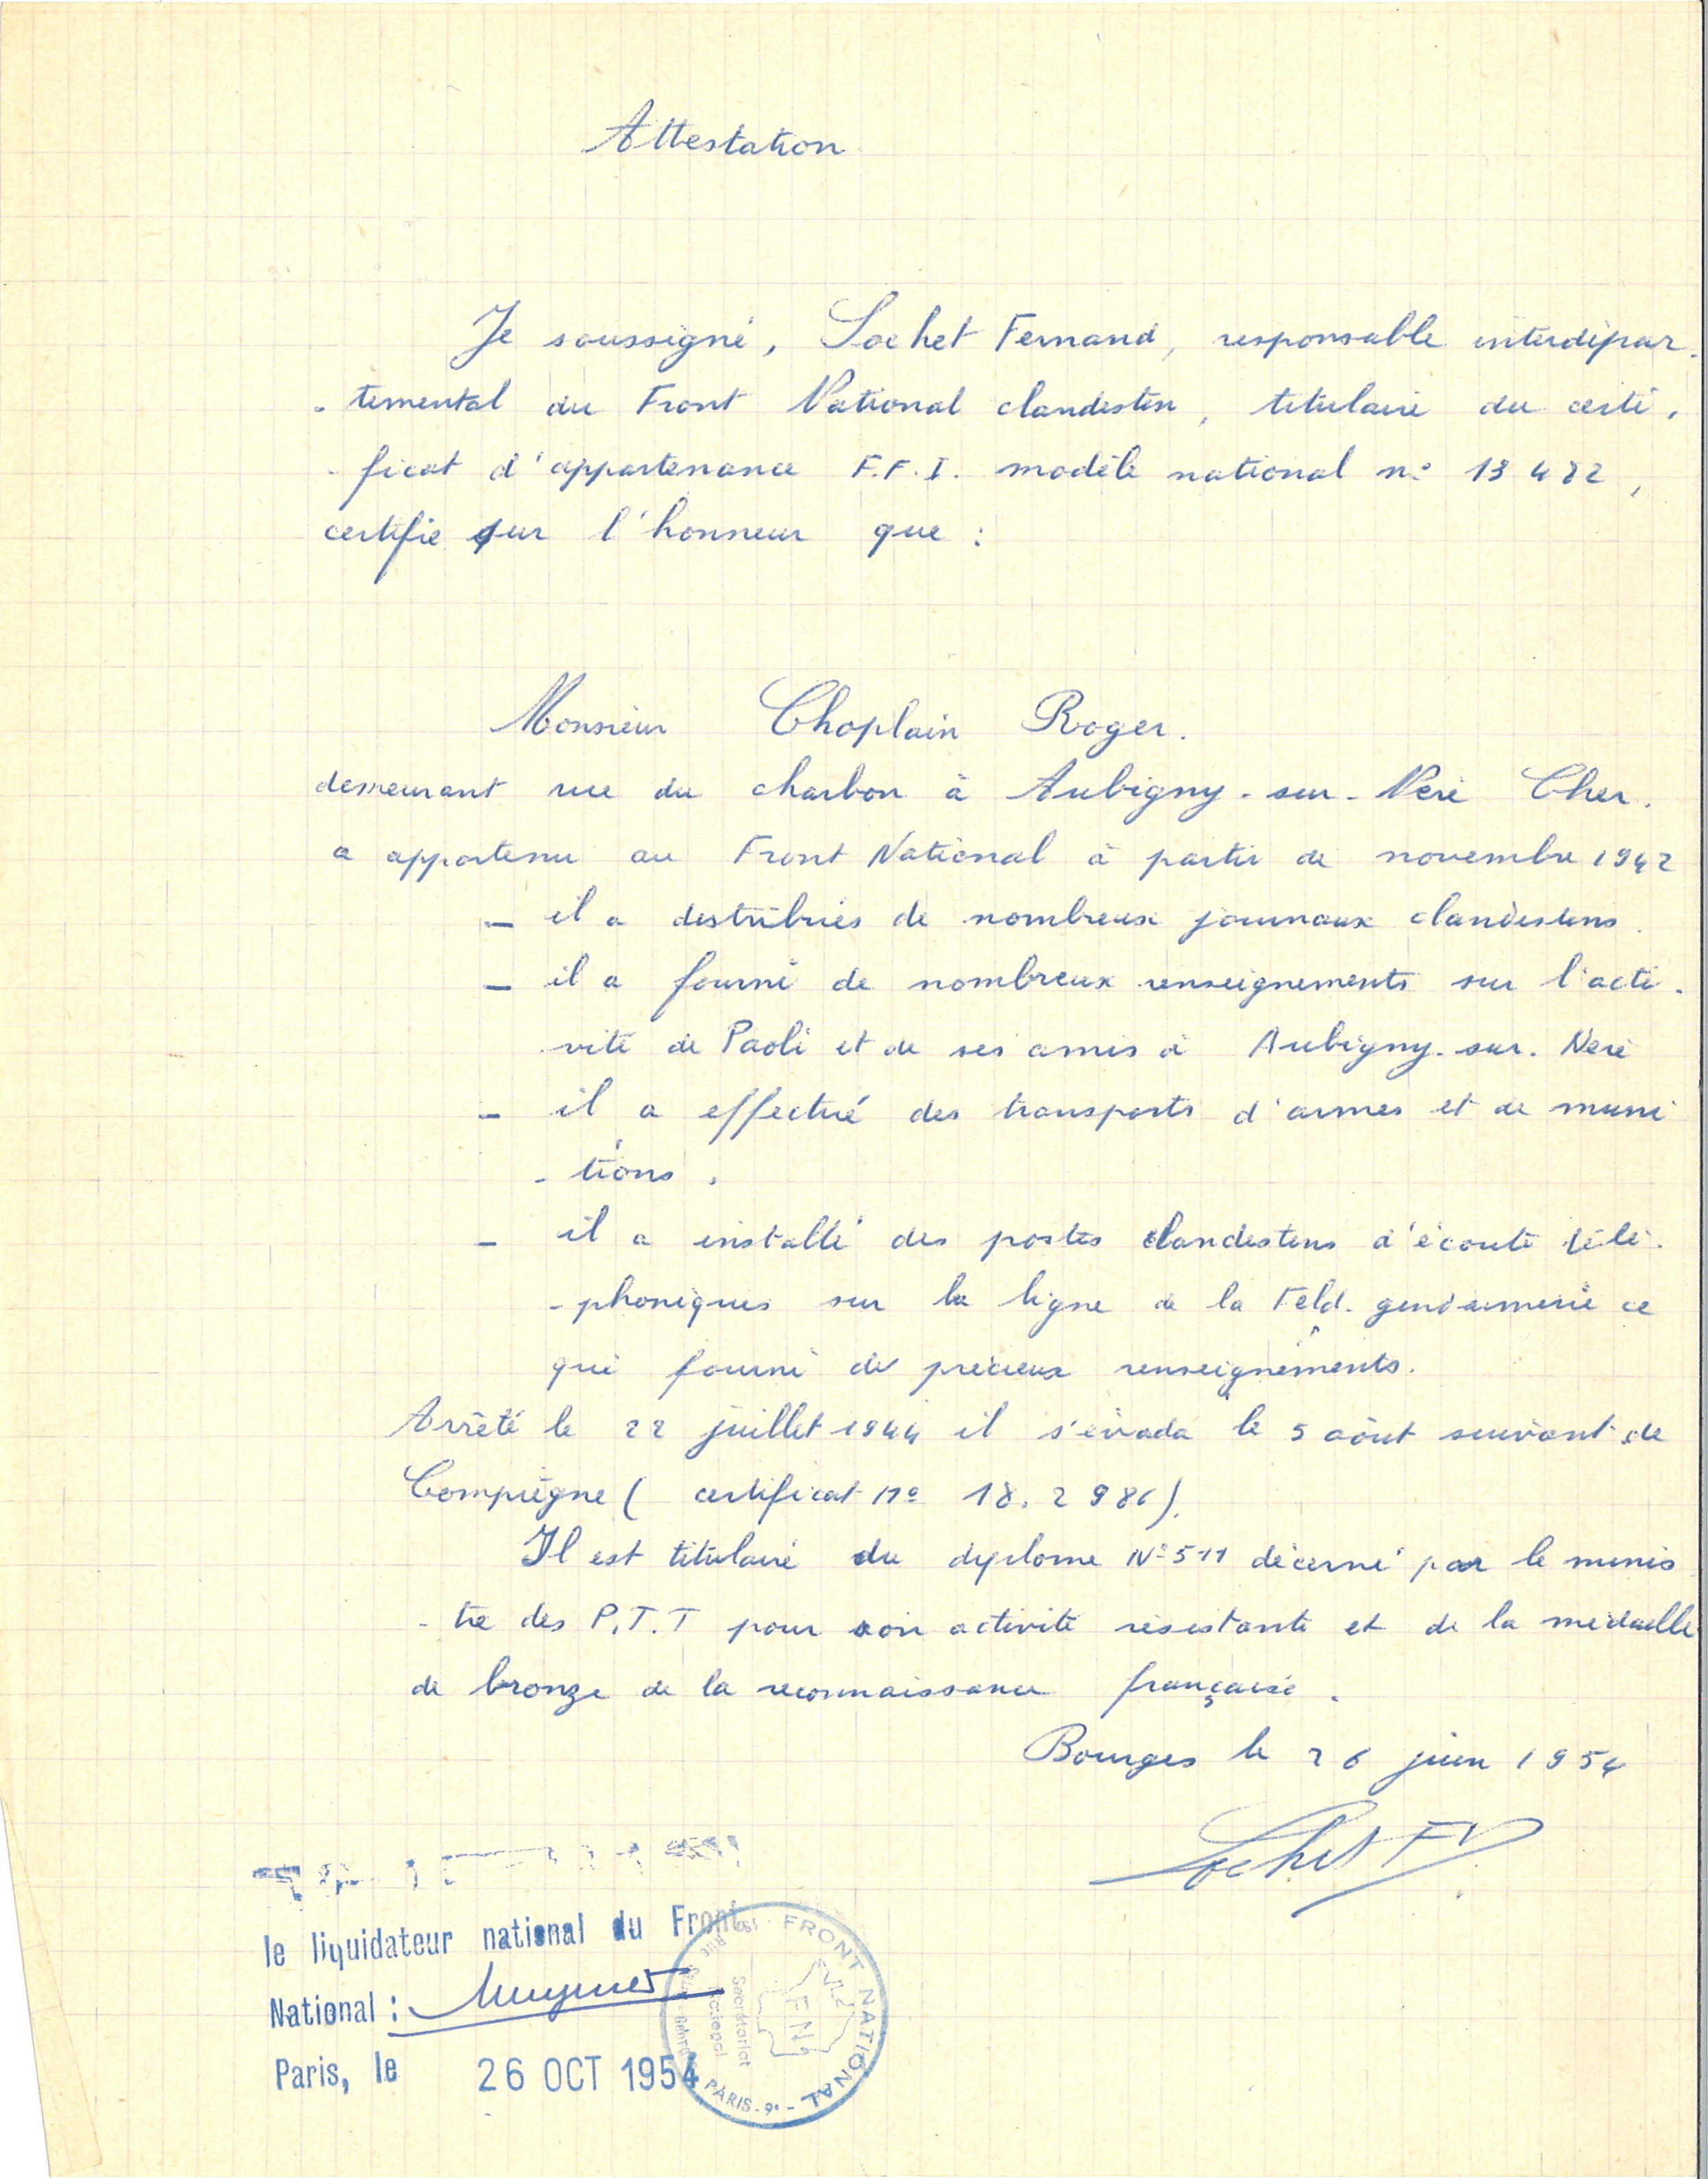 Attestation
Je soussigné, Sochet Fernand, responsable interdépar-
- temental du Front National clandestin, titulaire du certi-
- ficat d'appartenance F.F.I. modèle national n° 13 482,
certifie sur l'honneur que :
Monsieur Choplain Roger.
demeurant rue du charbon à Aubigny-sur-Nère Cher.
a appartenu au Front National à partir de novembre 1942
- il a distribués de nombreux journaux clandestins.
- il a fourni de nombreux renseignements sur l'acti-
vité de Paoli et de ses amis à Aubigny-sur-Nère
- il a effectué des transports d'armes et de muni
- tions.
- il a installé des postes clandestins d'écoute télé-
- phoniques sur la ligne de la Feld-gendarmerie ce
qui fourni de précieux renseignements.
Arrêté le 22 juillet 1944 il s'évada le 5 aôut suivant de
Compiègne ( certificat n° 18.2986).
Il est titulaire du dyplome N° 511 décerné par le minis
- tre des P.T.T pour son activité résistante et de la médaille
de bronze de la reconnaissance française.
Bourges le 26 juin 1954
Sochet Fd
le liquidateur national du Front
National :
Paris, le 26 OCT 1954
FRONT NATIONAL
FN
Secrétariat
National
PARIS-9e